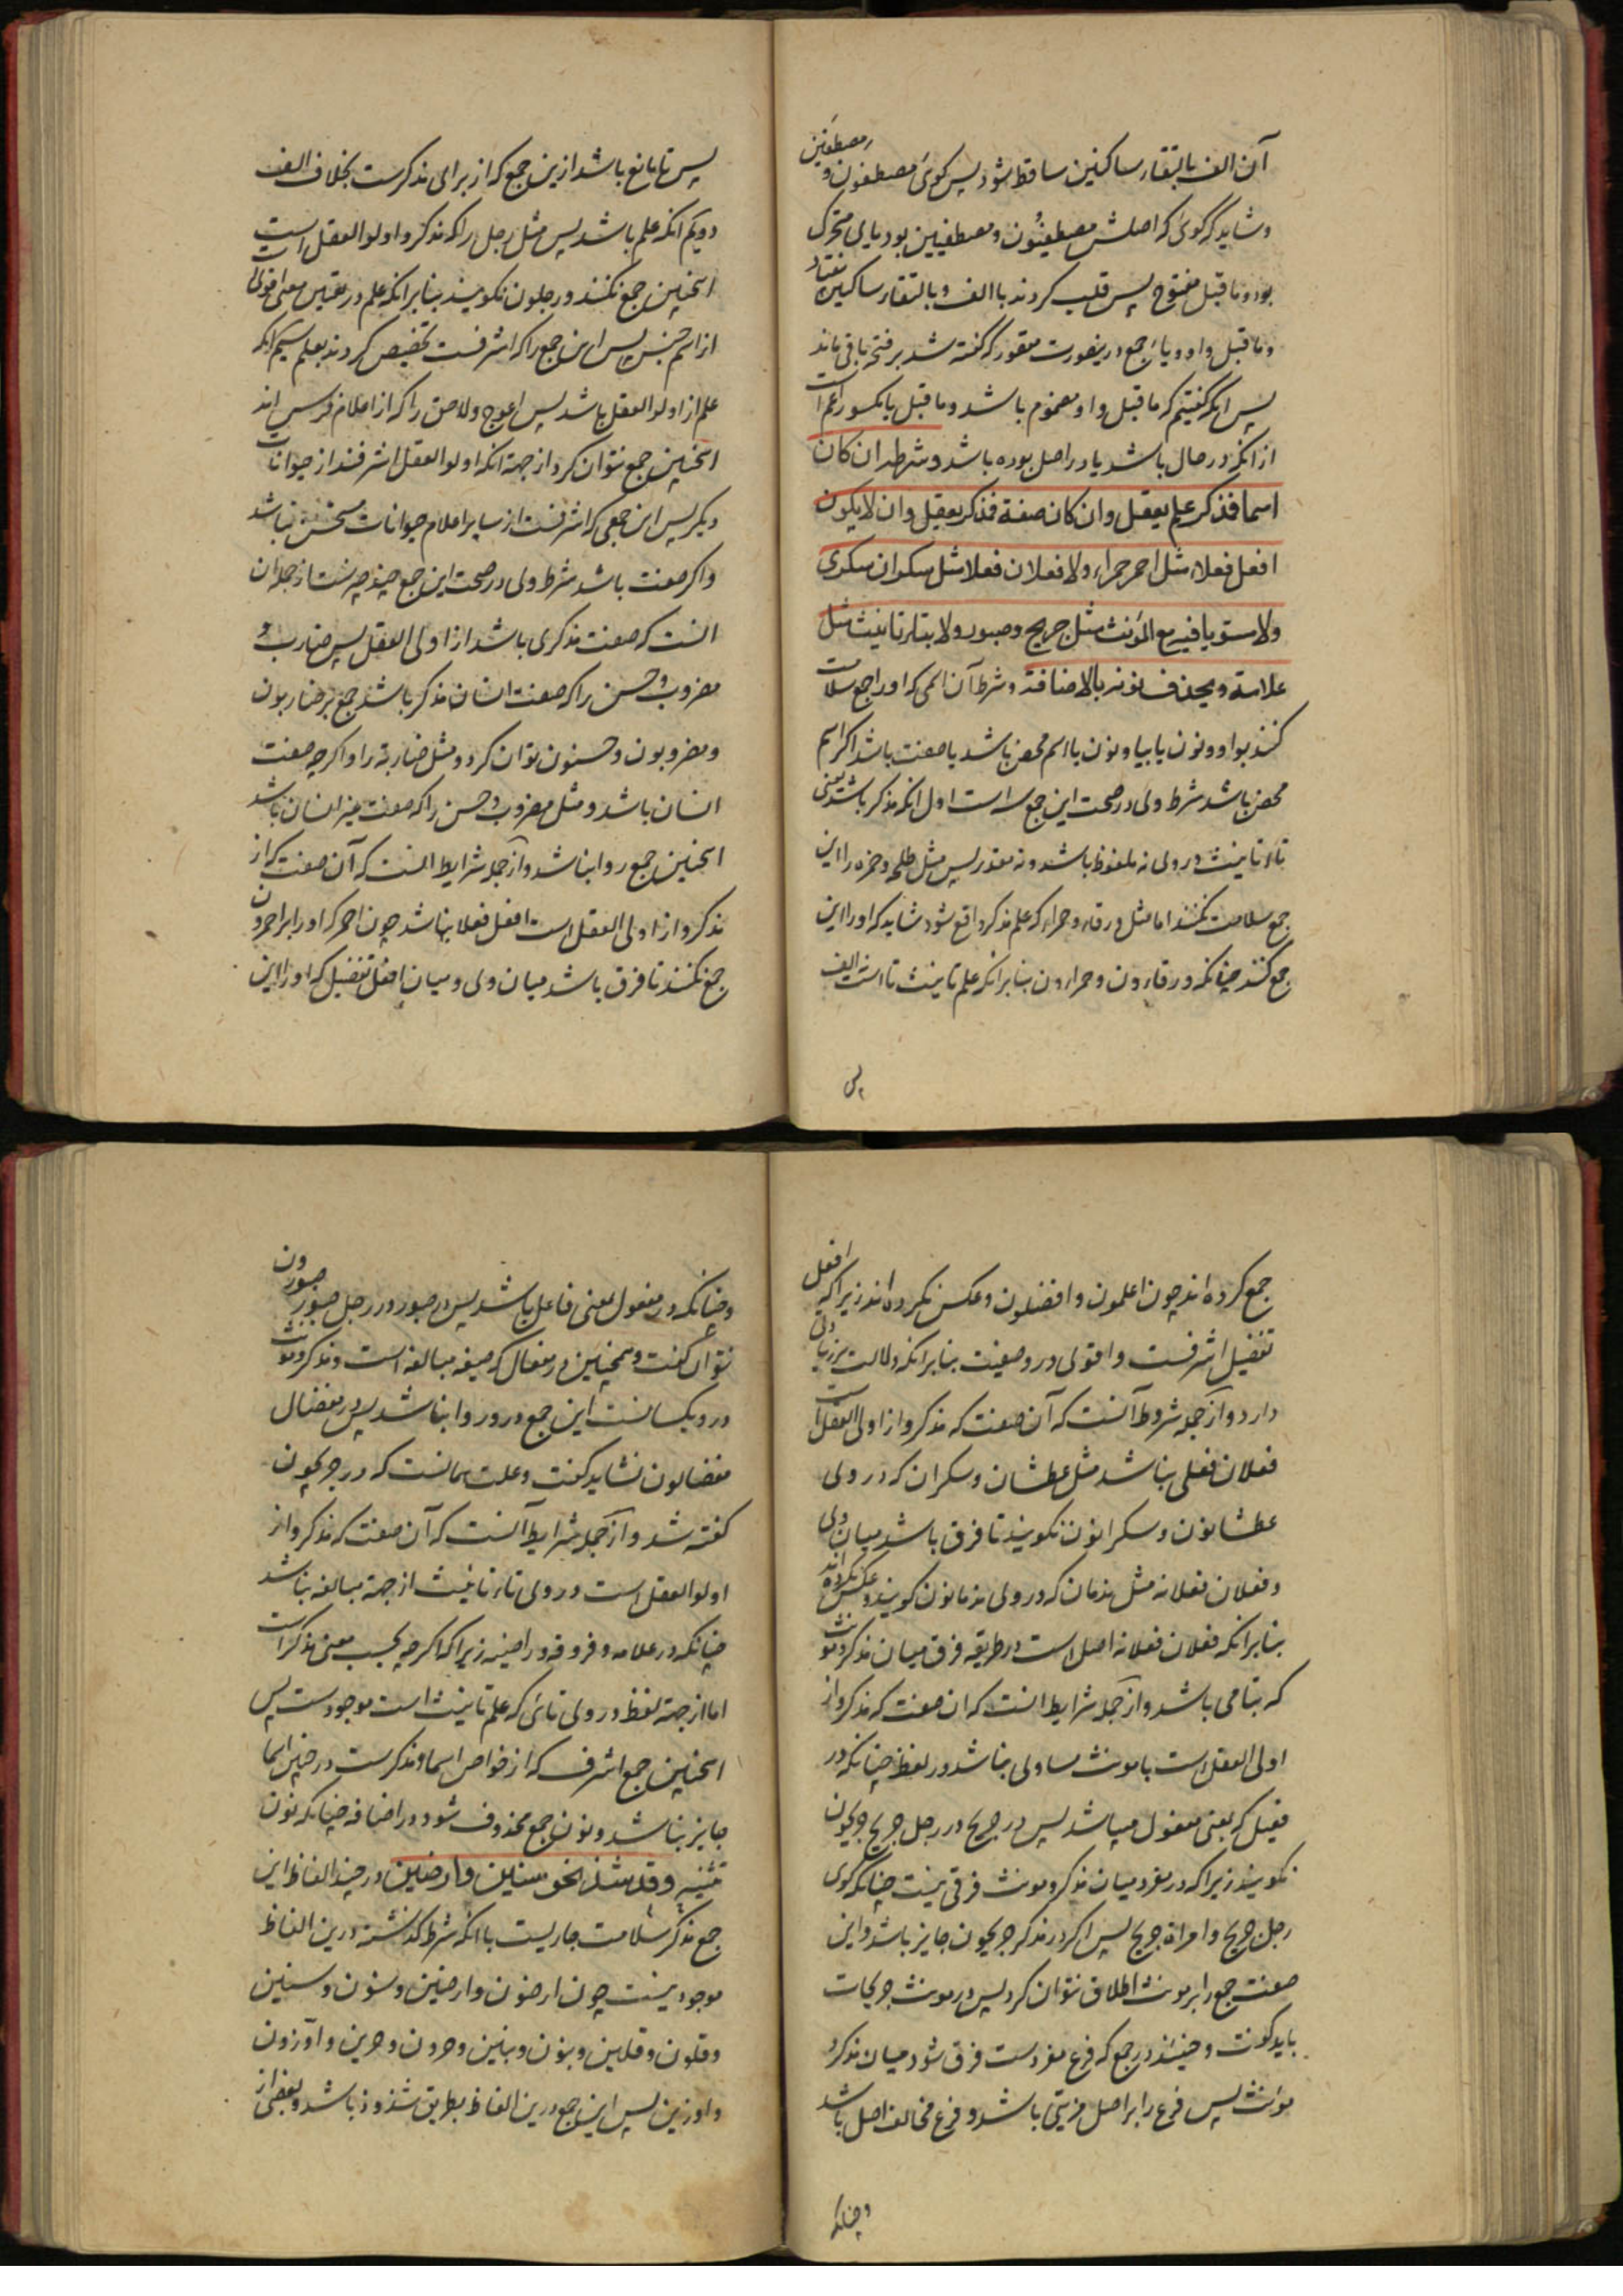 آن الف بالتقاء ساکنین ساقط شود پس کوئی مصطفون و مصطفین
وشاید که کوئی که اصلش مصطفیون ومصطفیین بود یای متحرک
بود وما قبل مفتوح پس قلب کردند با الف وبالتقاء ساکنین بیفتاد
وما قبل واو ویاء جمع درینصورت مقرر که گفته شد بر فتحه باقی ماند
پس انکه گفتیم که ما قبل واو مضموم باشد وما قبل یا مکسور اعم است
از انکه در حال باشد یا در اصل بوده باشد وشرطه ان کان
اسما فذکر علم یعقل وان کان صفة فذکر یعقل وان لا یکون
افعل فعلاء مثل احمر حمراء ولا فعلان فعلا مثل سکران سکری
ولا مستویا فیه مع المؤنث مثل جریح وصبور ولا بتاء تانیث مثل
علامة ویحذف نونه بالاضافة وشرط آن اسمی که اورا جمع سلامت
کنند بواو ونون یا بیا ونون یا اسم محض باشد یا صفت باشد اکر اسم
محض باشد شرط ولی در صحت این جمع سه است اول انکه مذکر باشد یعنی
تاء تانیث در ولی نه ملفوظ باشد ونه مقدر پس مثل طلحه وحمزه را این
جمع سلامت نکنند اما مثل ورقاء وحمراء که علم مذکر واقع شود شاید که اورا این
جمع کنند چنانکه ورقاءون وحمراءون بنابر انکه علم تانیث تا است نه الف
پس
پس تا مانع باشد ازین جمع که از برای مذکرست بخلاف الف
دویم انکه علم باشد پس مثل رجل را که مذکر واولوا العقل است
اینچنین جمع نکنند ورجلون نکویند بنابر انکه علم در تعین معنی اقوی
از اسم جنس پس این جمع را که اشرفست تخصیص کردند بعلم سیم انکه
علم از اولوا العقل باشد پس اعوج ولاحق را که از اعلام فرس اند
اینچنین جمع نتوان کرد از جهة انکه اولوا العقل اشرفند از حیوانات
دیکر پس این جمعی که اشرفست از سایر اعلام حیوانات مستحق نباشد
واکر صفت باشد شرط ولی در صحت این جمع چند چیزست از جمله ان
انست که صفت مذکری باشد از اولی العقل پس ضارب و
مضروب وحسن را که صفت انسان مذکر باشد جمع بر ضاربون
ومضروبون وحسنون توان کرد ومثل ضاربة را واکرچه صفت
انسان باشد ومثل مضروب وحسن را که صفت غیر انسان باشد
اینچنین جمع روا نباشد واز جمله شرایط انست که آن صفت که از
مذکر واز اولی العقل است افعل فعلا نباشد چون احمر که اورا بر احمرون
جمع نکنند تا فرق باشد میان ولی ومیان افعل تفضیل که اورا این
جمع کرده اند چون اعلمون وافضلون وعکس نکرده اند زیرا که افعل
تفضیل اشرفست واقوی در وصفیت بنابر انکه دلالت بر زیادتی
دارد واز جمله شروط آنست که آن صفت که مذکر واز اولی العقل است
فعلان فعلی نباشد مثل عطشان وسکران که در ولی
عطشانون وسکرانون نکویند تا فرق باشد میان ولی
وفعلان فعلانه مثل ندمان که در ولی ندمانون کویند وعکس نکرده اند
بنابر انکه فعلان فعلانه اصل است در طریقه فرق میان مذکر ومونث
که بتا می باشد واز جمله شرایط انست که ان صفت که مذکر واز
اولی العقل است با مونث مساوی نباشد در لفظ چنانکه در
فعیل که بمعنی مفعول میباشد پس در جریح در رجل جریح جریحون
نکویند زیرا که در مفرد میان مذکر ومونث فرقی نیست چنانکه کوی
رجل جریح وامراة جریح پس اکر در مذکر جریحون جایز باشد واین
صفت جمع را بر مونث اطلاق نتوان کرد پس در مونث جریحات
باید کفت وحینئذ در جمع که فرع مفردست فرق شود میان مذکر و
مونث پس فرع را بر اصل مزیتی باشد وفرع مخالف اصل باشد
وچنانکه
وچنانکه در مفعول بمعنی فاعل باشد پس در صبور در رجل صبور صبورون
نتوان کفت وهمچنین در مفعال که صیغه مبالغه است ومذکر ومونث
درو یکسانست این جمع درو روا نباشد پس در مفضال
مفضالون نشاید کفت وعلت همانست که در جریحون
کفته شد واز جمله شرایط آنست که آن صفت که مذکر واز
اولوا العقل است در ولی تاء تانیث از جهة مبالغه نباشد
چنانکه در علامه وفروقه وراضیه زیرا که اکرچه بحسب معنی مذکر است
اما از جهة لفظ در ولی تائی که علم تانیث است موجودست پس
اینچنین جمع اشرف که از خواص اسماء مذکرست در چنین اسما
جایز نباشد ونون جمع محذوف شود در اضافه چنانکه نون
تثنیه وقد شذ نحو سنین وارضین در چند الفاظ این
جمع مذکر سلامت جاریست با انکه شرط کذشته درین الفاظ
موجود نیست چون ارضون وارضین وسنون وسنین
وقلون وقلین وبنون وبنین وحرون وحرین واوزون
واوزین پس این جمع درین الفاظ بطریق شذوذ باشد وبعضی از